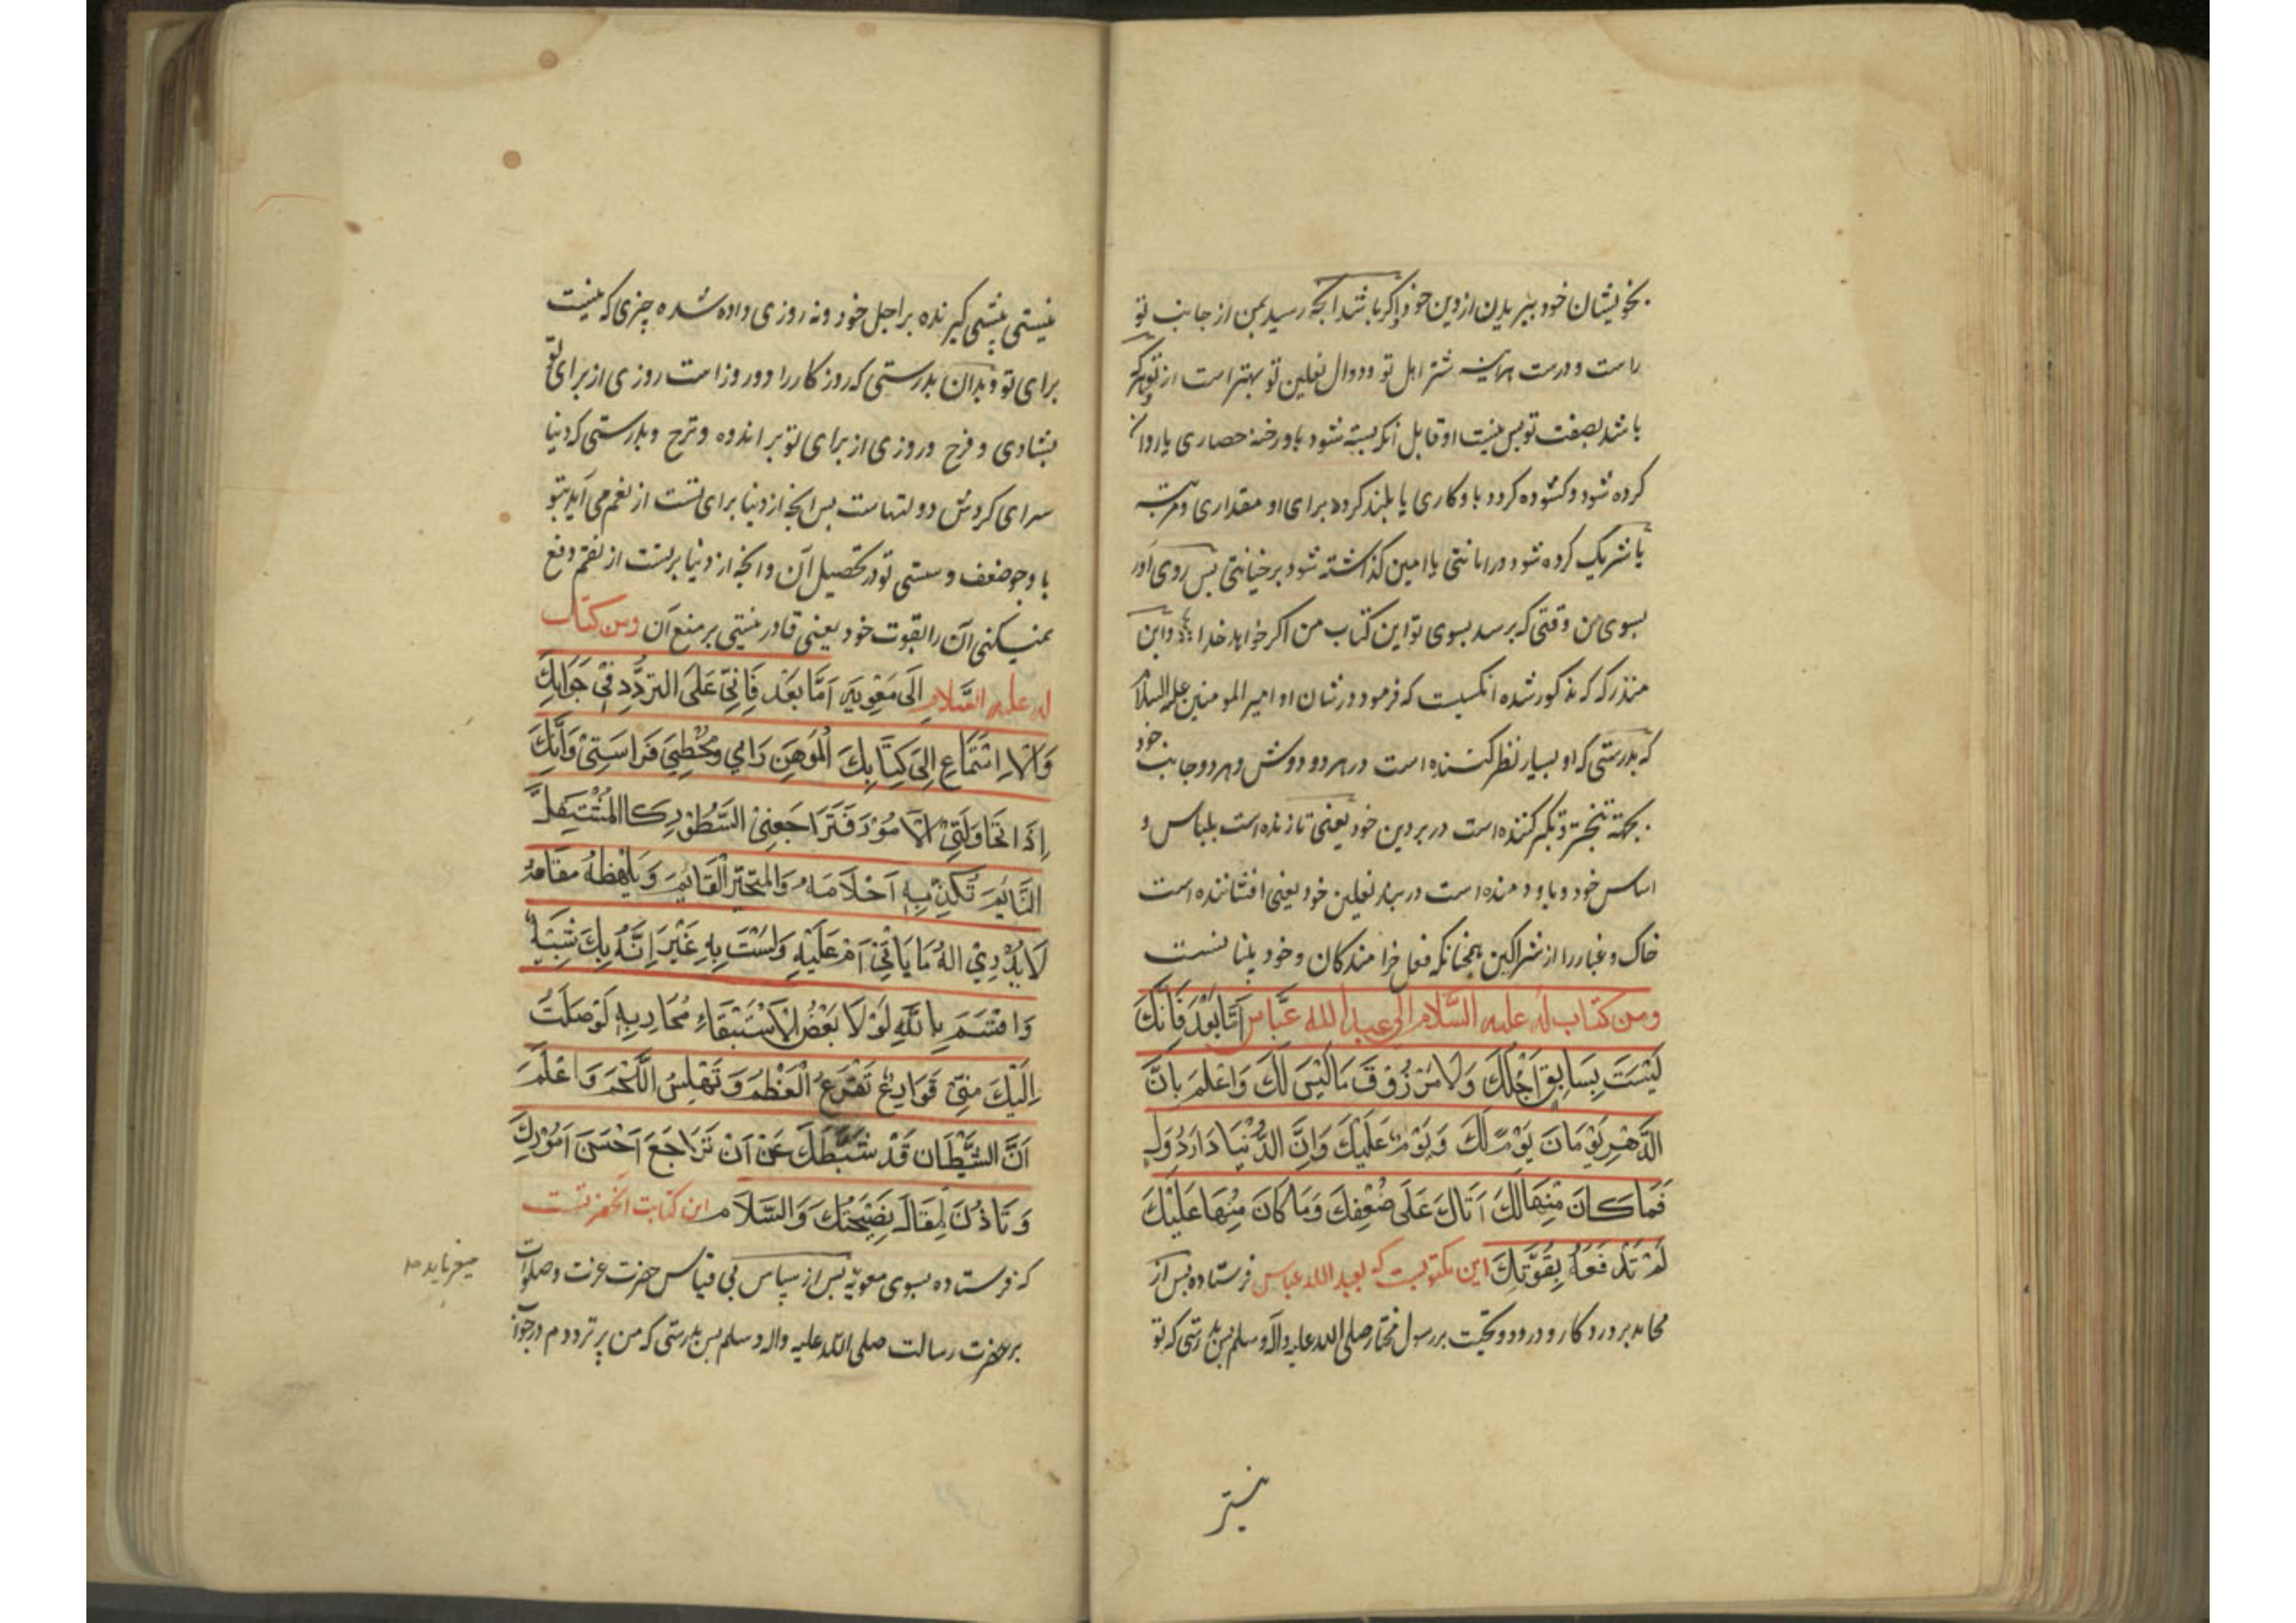 بخویشان خود ببریدن از دین خود و اکر باشد انچه رسید بمن از جانب تو
راست و درست هراینه شتر اهل تو و دوال نعلین تو بهتر است از تو و هرکه
باشد بصفت تو پس نیست او قابل آنکه بسته شود باو رخنهٔ حصاری یا روان
کرده شود و کشوده کردد باو کاری یا بلند کرده برای او مقداری و مرتبه
یا شریک کرده شود در امانتی یا امین کذاشته شود بر خیانتی پس روی آور
بسوی من وقتی که برسد بسوی تو این کتاب من اکر خواهد خدا و این
منذر که مذکور شده انکسیست که فرمود در شان او امیر المومنین علیه السلام
که بدرستی که او بسیار نظر کننده است در هر دو دوش و هر دو جانب خود
بجهة تبختر و تکبر کننده است در بردین خود یعنی نازنده است بلباس و
اساس خود و باد دمنده است در بند نعلین خود یعنی افشاننده است
خاک و غبار را از شراکین همچنانکه فعل خرامندکان و خود بینانست
ومن کتاب له علیه السّلام الی عبد الله عبّاس اَمّا بَعْدُ فَاِنَّكَ
لَيْسَت بِسَابِقٍ اَجَلَكَ وَلَا مَرْزُوْقٍ مَا لَيْسَ لَكَ وَاعْلَم بِاَنَّ
الدَّهْرَ يَوْمَانَ يَوْمٌ لَكَ وَيَوْمٌ عَلَيْكَ وَاِنَّ الدُّنْيَا دَارُ دُوَلٍ
فَمَا كَانَ مِنْهَا لَكَ اَتَاكَ عَلَى ضُعْفِكَ وَمَا كَانَ مِنْهَا عَلَيْكَ
لَمْ تَدْفَعْهُ بِقُوَّتِكَ این مکتوبیست که بعبد الله عباس فرستاده پس از
محامد پروردکار و درود و تحیت بر رسول مختار صلی الله علیه و آله و سلم پس بدرستی که تو
نیستی پیشی کیرنده بر اجل خود و نه روزی داده شده چیزی که نیست
برای تو و بدان بدرستی که روزکار را دو روز است روزی از برای تو
بشادی و فرح و روزی از برای تو بر اندوه و ترح و بدرستی که دنیا
سرای کردش دولتهاست پس انچه از دنیا برای تست از نعم می آید بتو
با وجو ضعف و سستی تو در تحصیل آن و انچه از دنیا بر تست از نقم دفع
نمیکنی آن را بقوت خود یعنی قادر نیستی بر منع آن ومن کتاب
له علیه السّلام اِلَى مَعٰوِيَه اَمَّا بَعْدُ فَاِنِّي عَلَى التَرَدُّدِ فِيْ جَوَابِكَ
وَالْاِسْتِمَاعِ اِلَى كِتَابِكَ الْمُوَهِّنِ رَايِي وَمُخْطِئٍ فَرَاسَتِيْ وَاِنَّكَ
اِذَا تُحَاوِلُنِيْ الْاُمُوْرَ فَتُرَاجِعُنِيْ السُّطُوْرَ كَالمُسْتَثْقِلِ
النَّائِمِ تُكَذِّبُهُ اَحْلَامَهُ وَالمُتَحَيِّرِ القَائِمِ وَيَبْهَظُهُ مَقَامُهُ
لَا يَدْرِيْ الَهُ مَا يَاتِيْ اَمْ عَلَيْهِ وَلَسْتَ بِهِ غَيْرَ اِنَّهُ بِكَ شَبِيْهٌ
وَاُقْسِمُ بِاللّٰهِ لَوْلَا بَعْضُ الْاِسْتِبْقَاءِ لَوَصَلَتْ
اِلَيْكَ مِنِّيْ قَوَارِعُ تَقْرَعُ الْعَظْمَ وَتَهْلِسُ اللَّحْمَ وَاعْلَمْ
اَنَّ الشَّيْطَانَ قَدْ ثَبَّطَكَ عَنْ اَنْ تُرَاجِعَ اَحْسَنَ اُمُوْرِكَ
وَتَاْذَنَ لِمَقَالِ نَصِيْحَتِكَ وَالسَّلَام این کتابت انحضرتست
که فرستاده بسوی معویه پس از سپاس بی قیاس حضرت عزت و صلوات
میفرماید
بر حضرت رسالت صلی الله علیه واله وسلم پس بدرستی که من بر ترددم در جواب